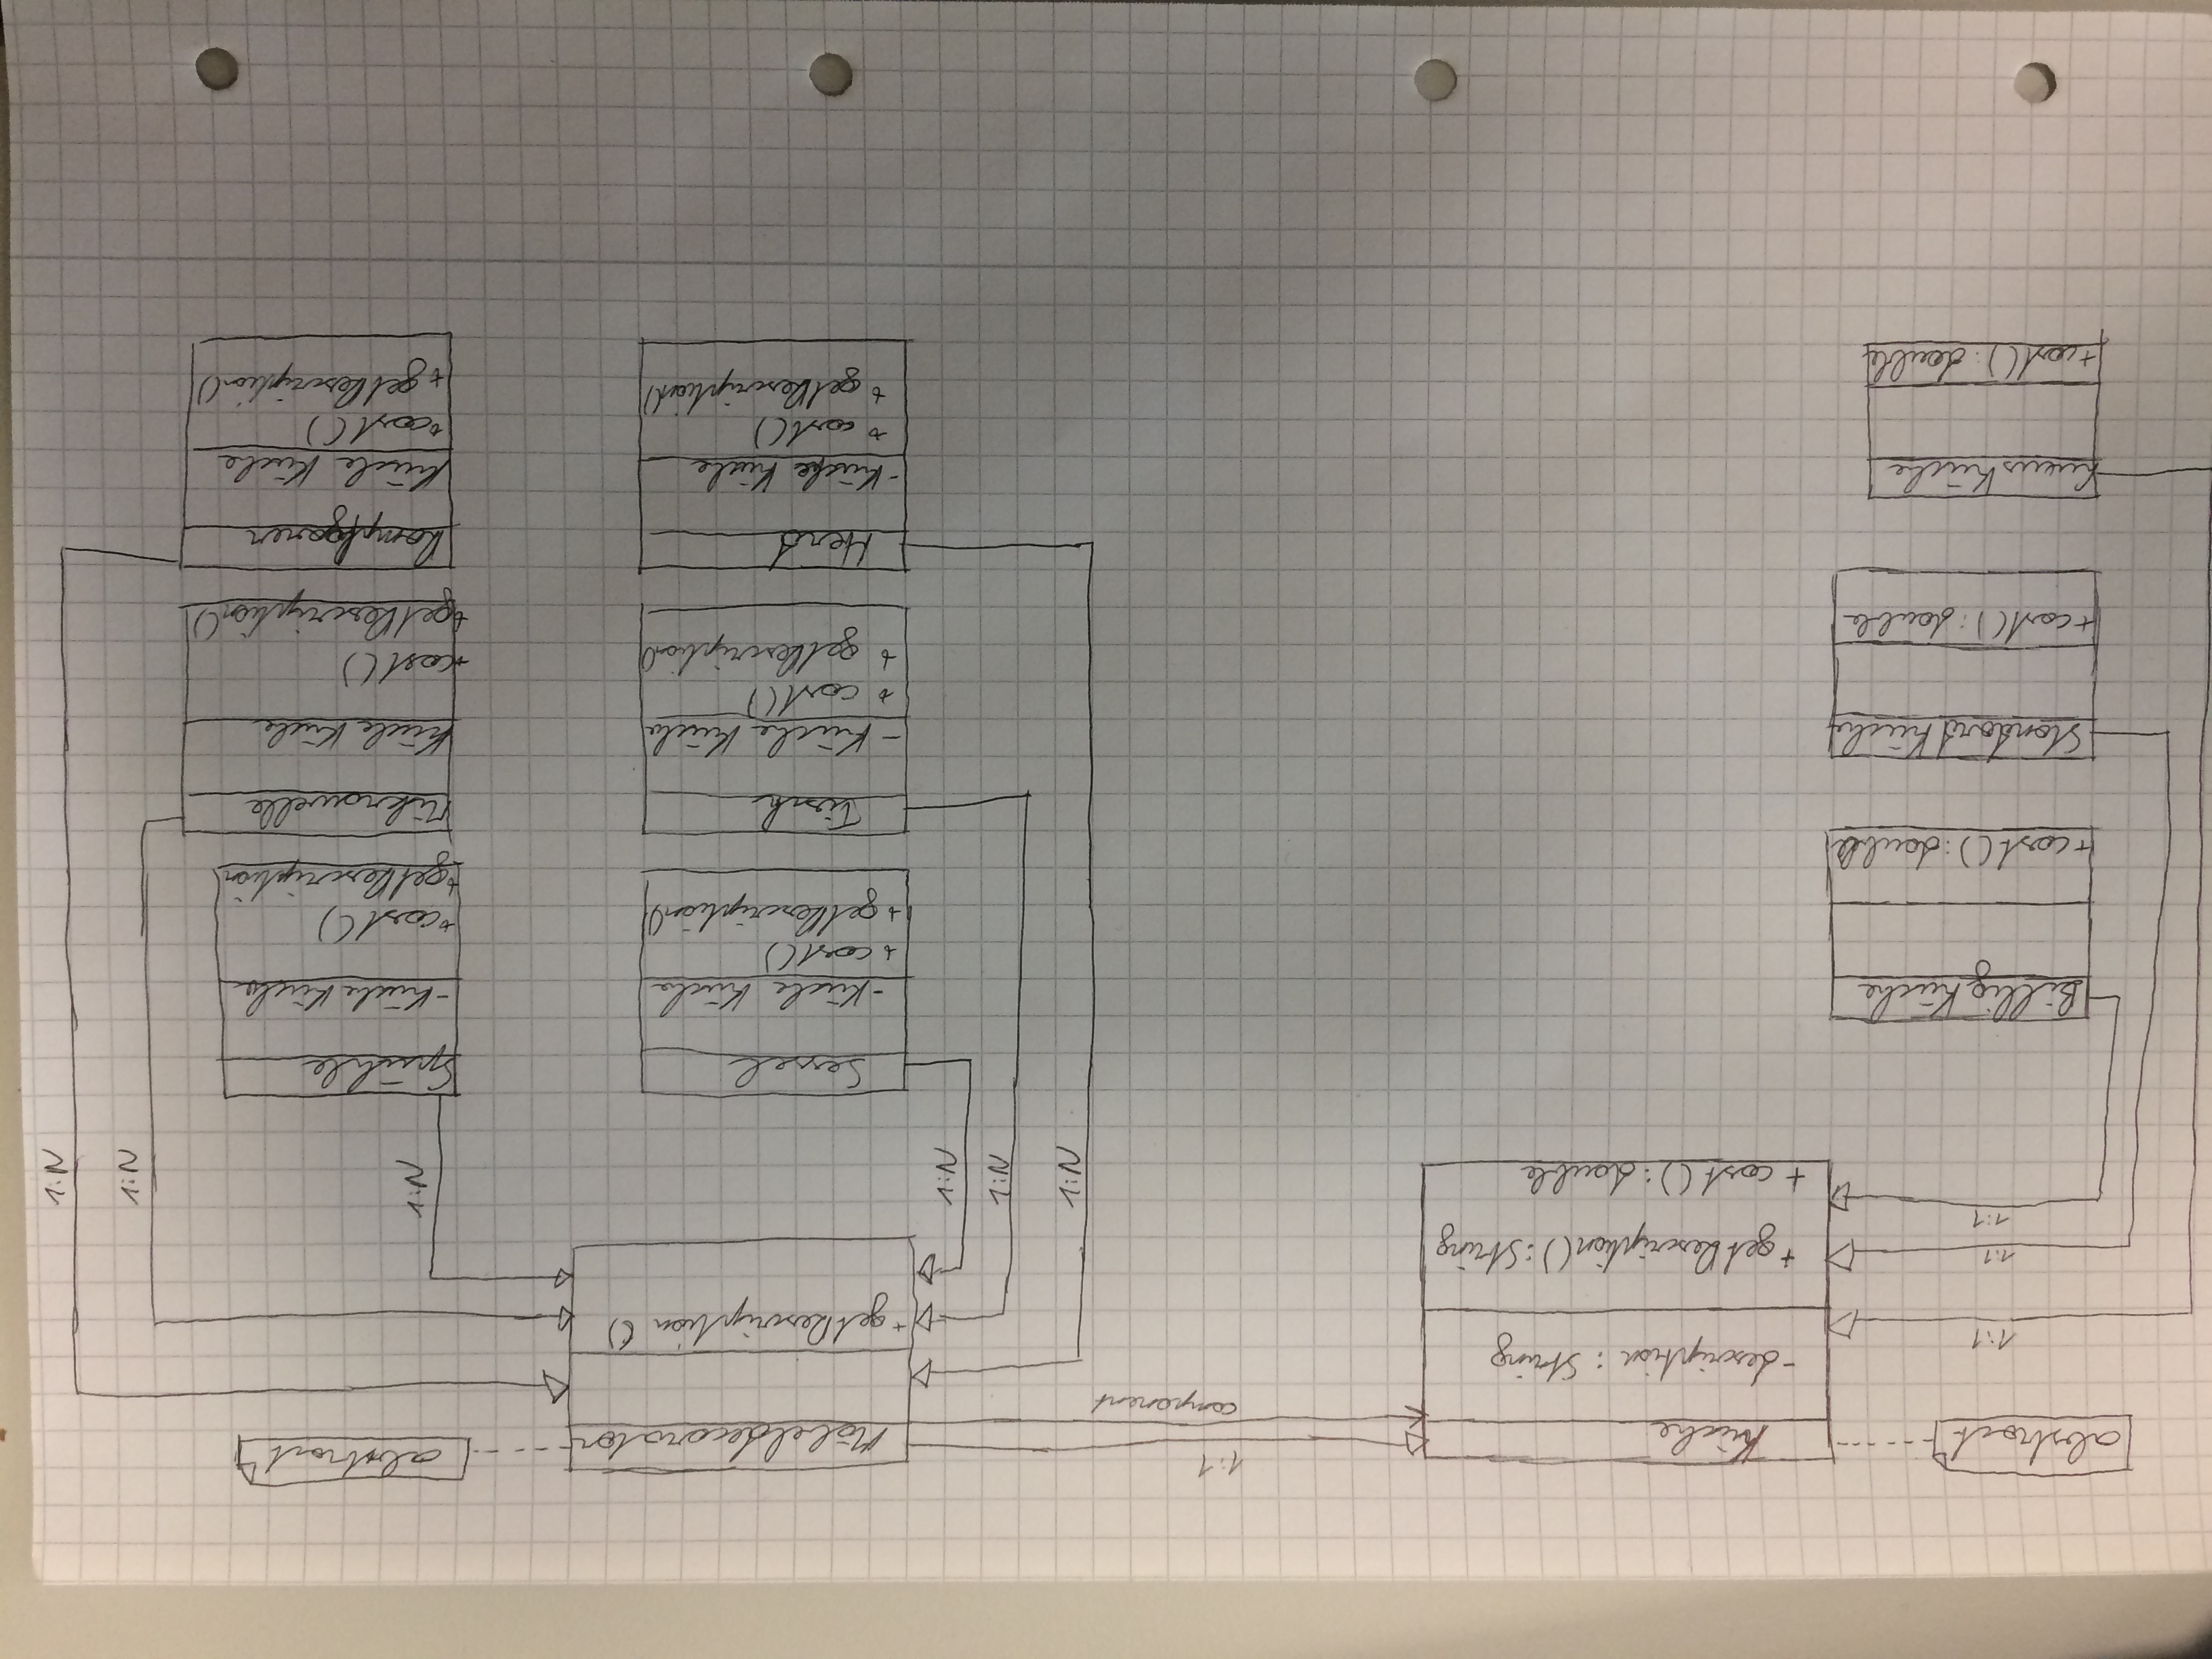 abstract
Küche
- description : String
+ getDescription() : String
+ cost() : double
1:1
1:1
1:1
BilligKüche
+cost() : double
StandardKüche
+cost() : double
LuxusKüche
+cost() : double
1:1
component
Möbeldecorator
+ getDescription ()
abstract
1:N
1:N
1:N
Sessel
- Küche Küche
+ cost()
+ getDescription()
Tisch
- Küche Küche
+ cost()
+ getDescription()
Herd
- Küche Küche
+ cost()
+ getDescription()
1:N
1:N
1:N
Spühle
- Küche Küche
+cost()
+getDescription()
Mikrowelle
Küche Küche
+cost()
+getDescription()
Dampfgarer
Küche Küche
+cost()
+ getDescription()